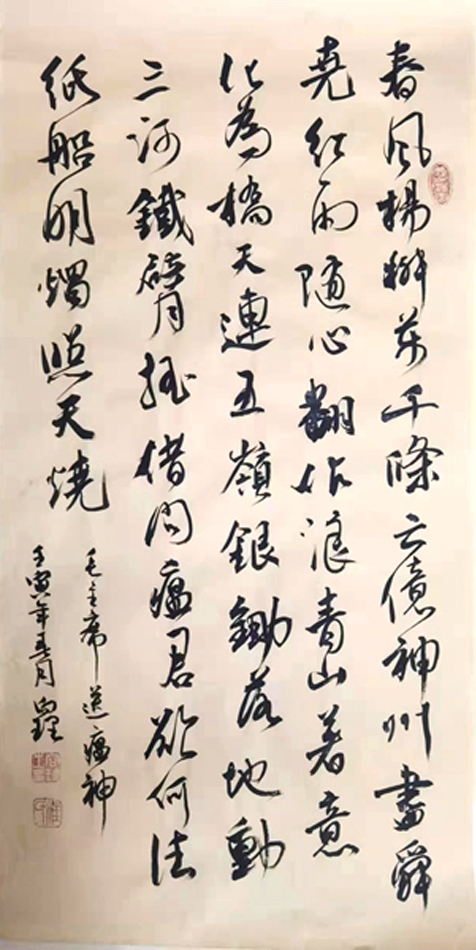 春風楊柳萬千條六億神州盡舜
堯紅雨隨心翻作浪青山著意
化為橋天連五嶺銀鋤落地動
三河鐵臂搖借問瘟君欲何往
紙船明燭照天燒
毛主席送瘟神
壬寅年五月